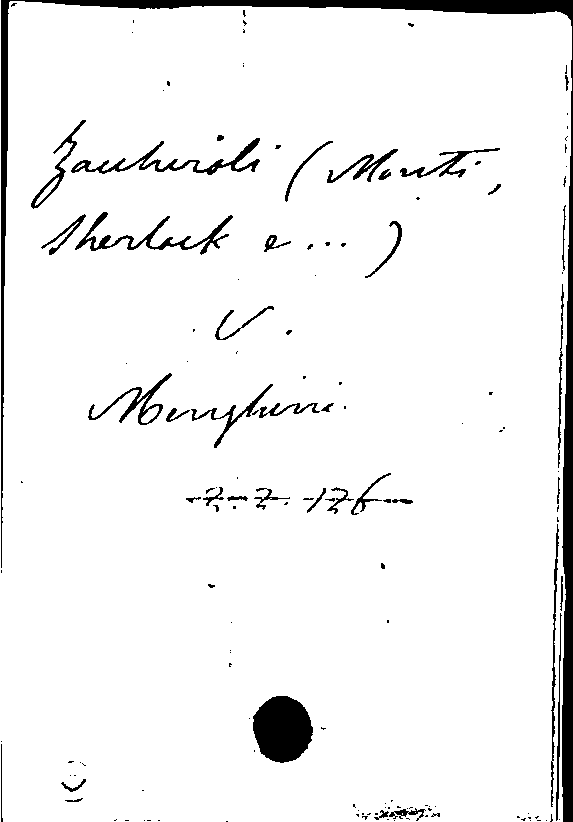 Zauheroli (Monti,
Sherlock e ...)
V.
Menghini.
Z. Z. 126